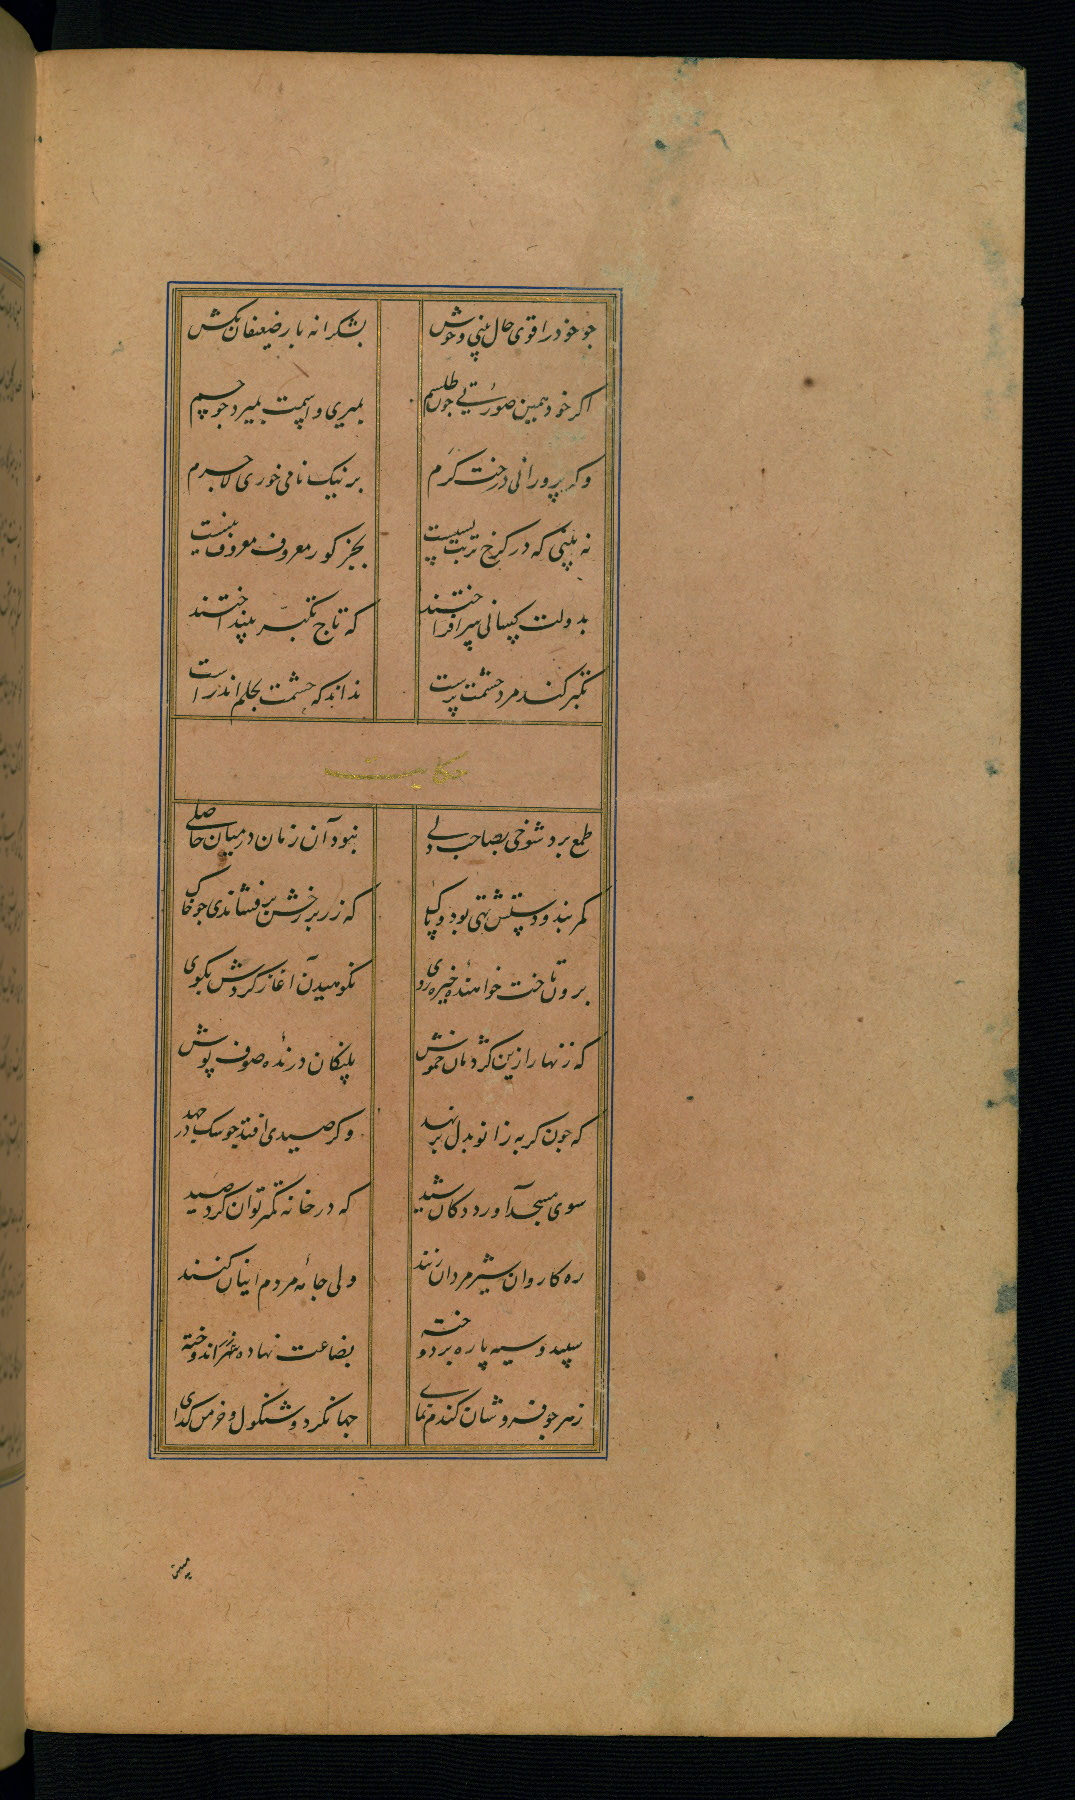 جو خود را قوی حال بینی و خوش بشکرانه بار ضعیفان بکش
اکر خود همین صورتی جون طلسم بمیری و اسمت بمیرد جو جسم
وکر پرورانی درخت کرم بر نیک نامی خوری لاجرم
نه بینی که در کرخ تربت بسیست بجز کور معروف معروف نیست
بدولت کسانی سر افراختند که تاج تکبر بینداختند
تکبر کند مرد حشمت پرست نداند که حشمت بحلم اندرست
حکایت
طمع برد شوخی بصاحب دلی نبود آن زمان در میان حاصلی
کمربند و دستش تهی بود و پاک که زر بر رخش برفشاندی جو خاک
برون تاخت خواهندهٔ خیره روی نکوهیدن آغاز کردش بکوی
که زنهار ازین کژدمان خموش پلنکان درندهٔ صوف پوش
که جون کربه زانو بدل بر نهند وکر صیدی افتد جو سک در جهند
سوی مسجد آورده دکان شید که در خانه کمتر توان کرد صید
ره کاروان شیر مردان زنند ولی جامهٔ مردم اینان کنند
سپید و سیه پاره بر دوخته بضاعت نهاده زر اندوخته
زهی جو فروشان کندم نمای جهانکرد و شنکول و خرمن کدای